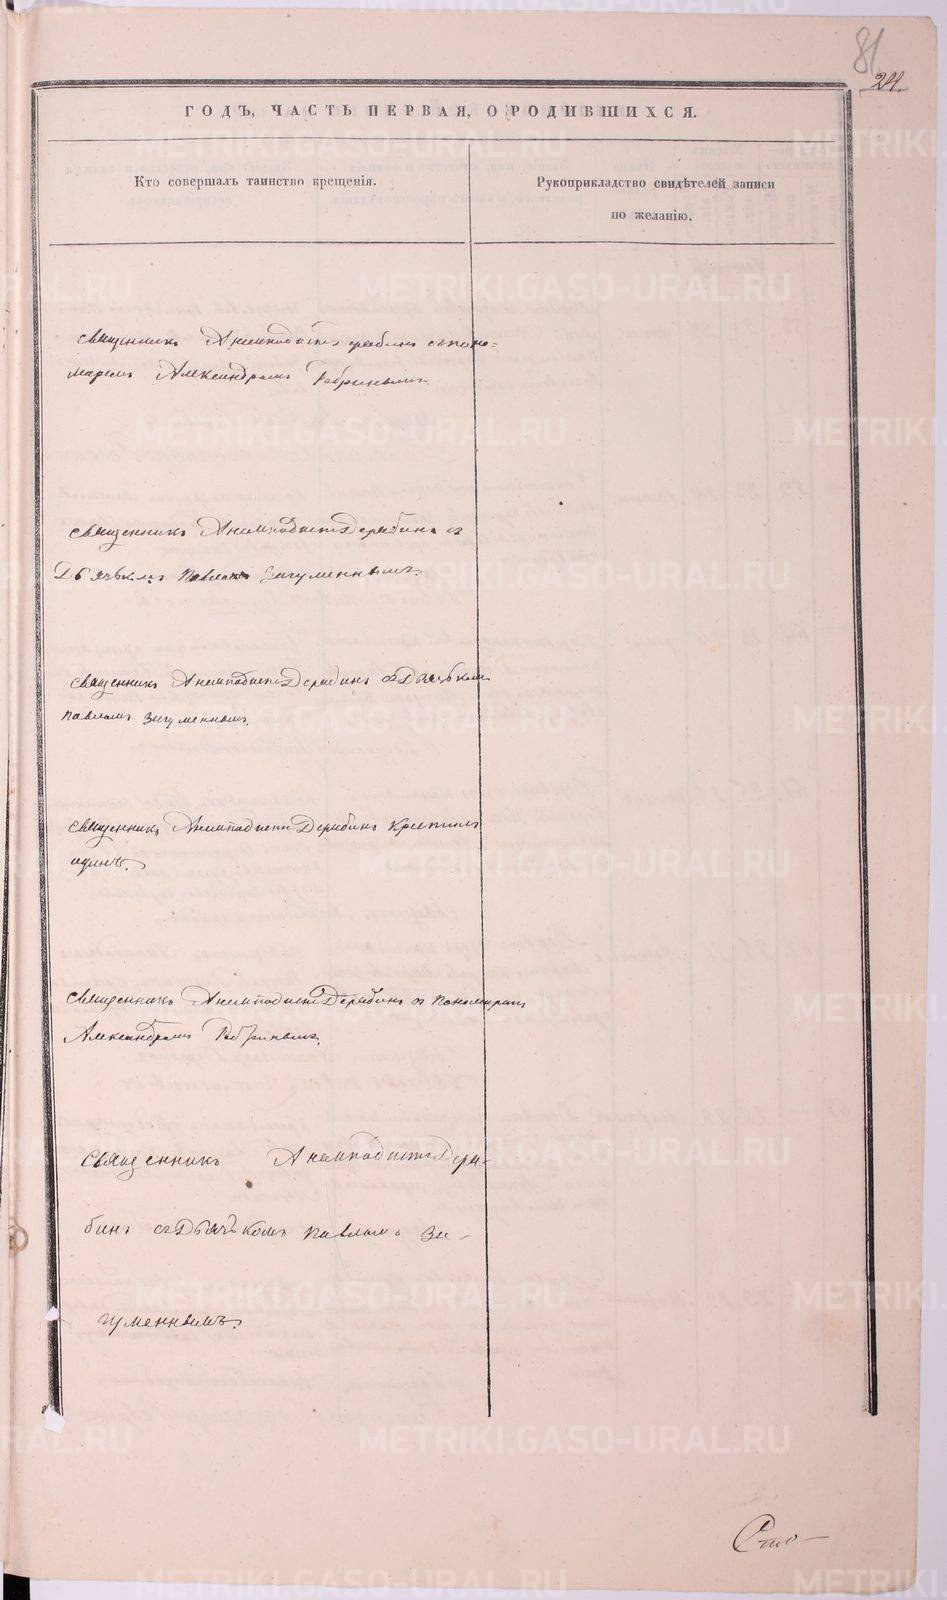 81
24.
ГОДЪ, ЧАСТЬ ПЕРВАЯ, О РОДИВШИХСЯ.
Кто совершалъ таинство крещенія.
Рукоприкладство свидѣтелей записи
по желанію.
священникъ Анемподистъ Дерябинъ съ поно=
маремъ Александромъ
священникъ Анемподистъ Дерябинъ съ
Дьячькомъ Павломъ Загуменнымъ.
священникъ Анемподистъ Дерябинъ съ Дьячькомъ
Павломъ Загуменнымъ.
священникъ Анемподистъ Дерябинъ крестилъ
одинъ.
священникъ Анемподистъ Дерябинъ съ пономаремъ
Александромъ
священникъ Анемподистъ Деря-
бинъ съ Дьячькомъ Павломъ За-
гуменнымъ.
METRIKI.GASO-URAL.RU